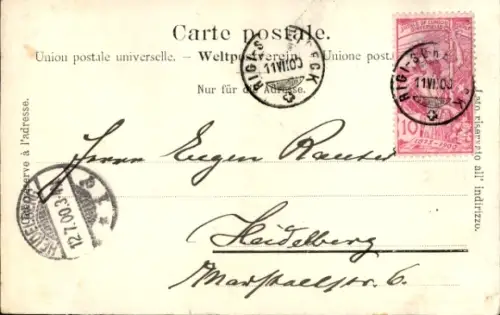 Carte postale.
Union postale universelle. – Weltpostverein. – Unione postale
Nur für die Adresse.
RIGI-S
11.VII.00
RIGI-S
11.VII.00
10
Lato riservato all' indirizzo.
réservé à l'adresse.
HEIDELBERG
12.7.00.3-4
Herrn Eugen
Heidelberg
Marstallstr. 6.